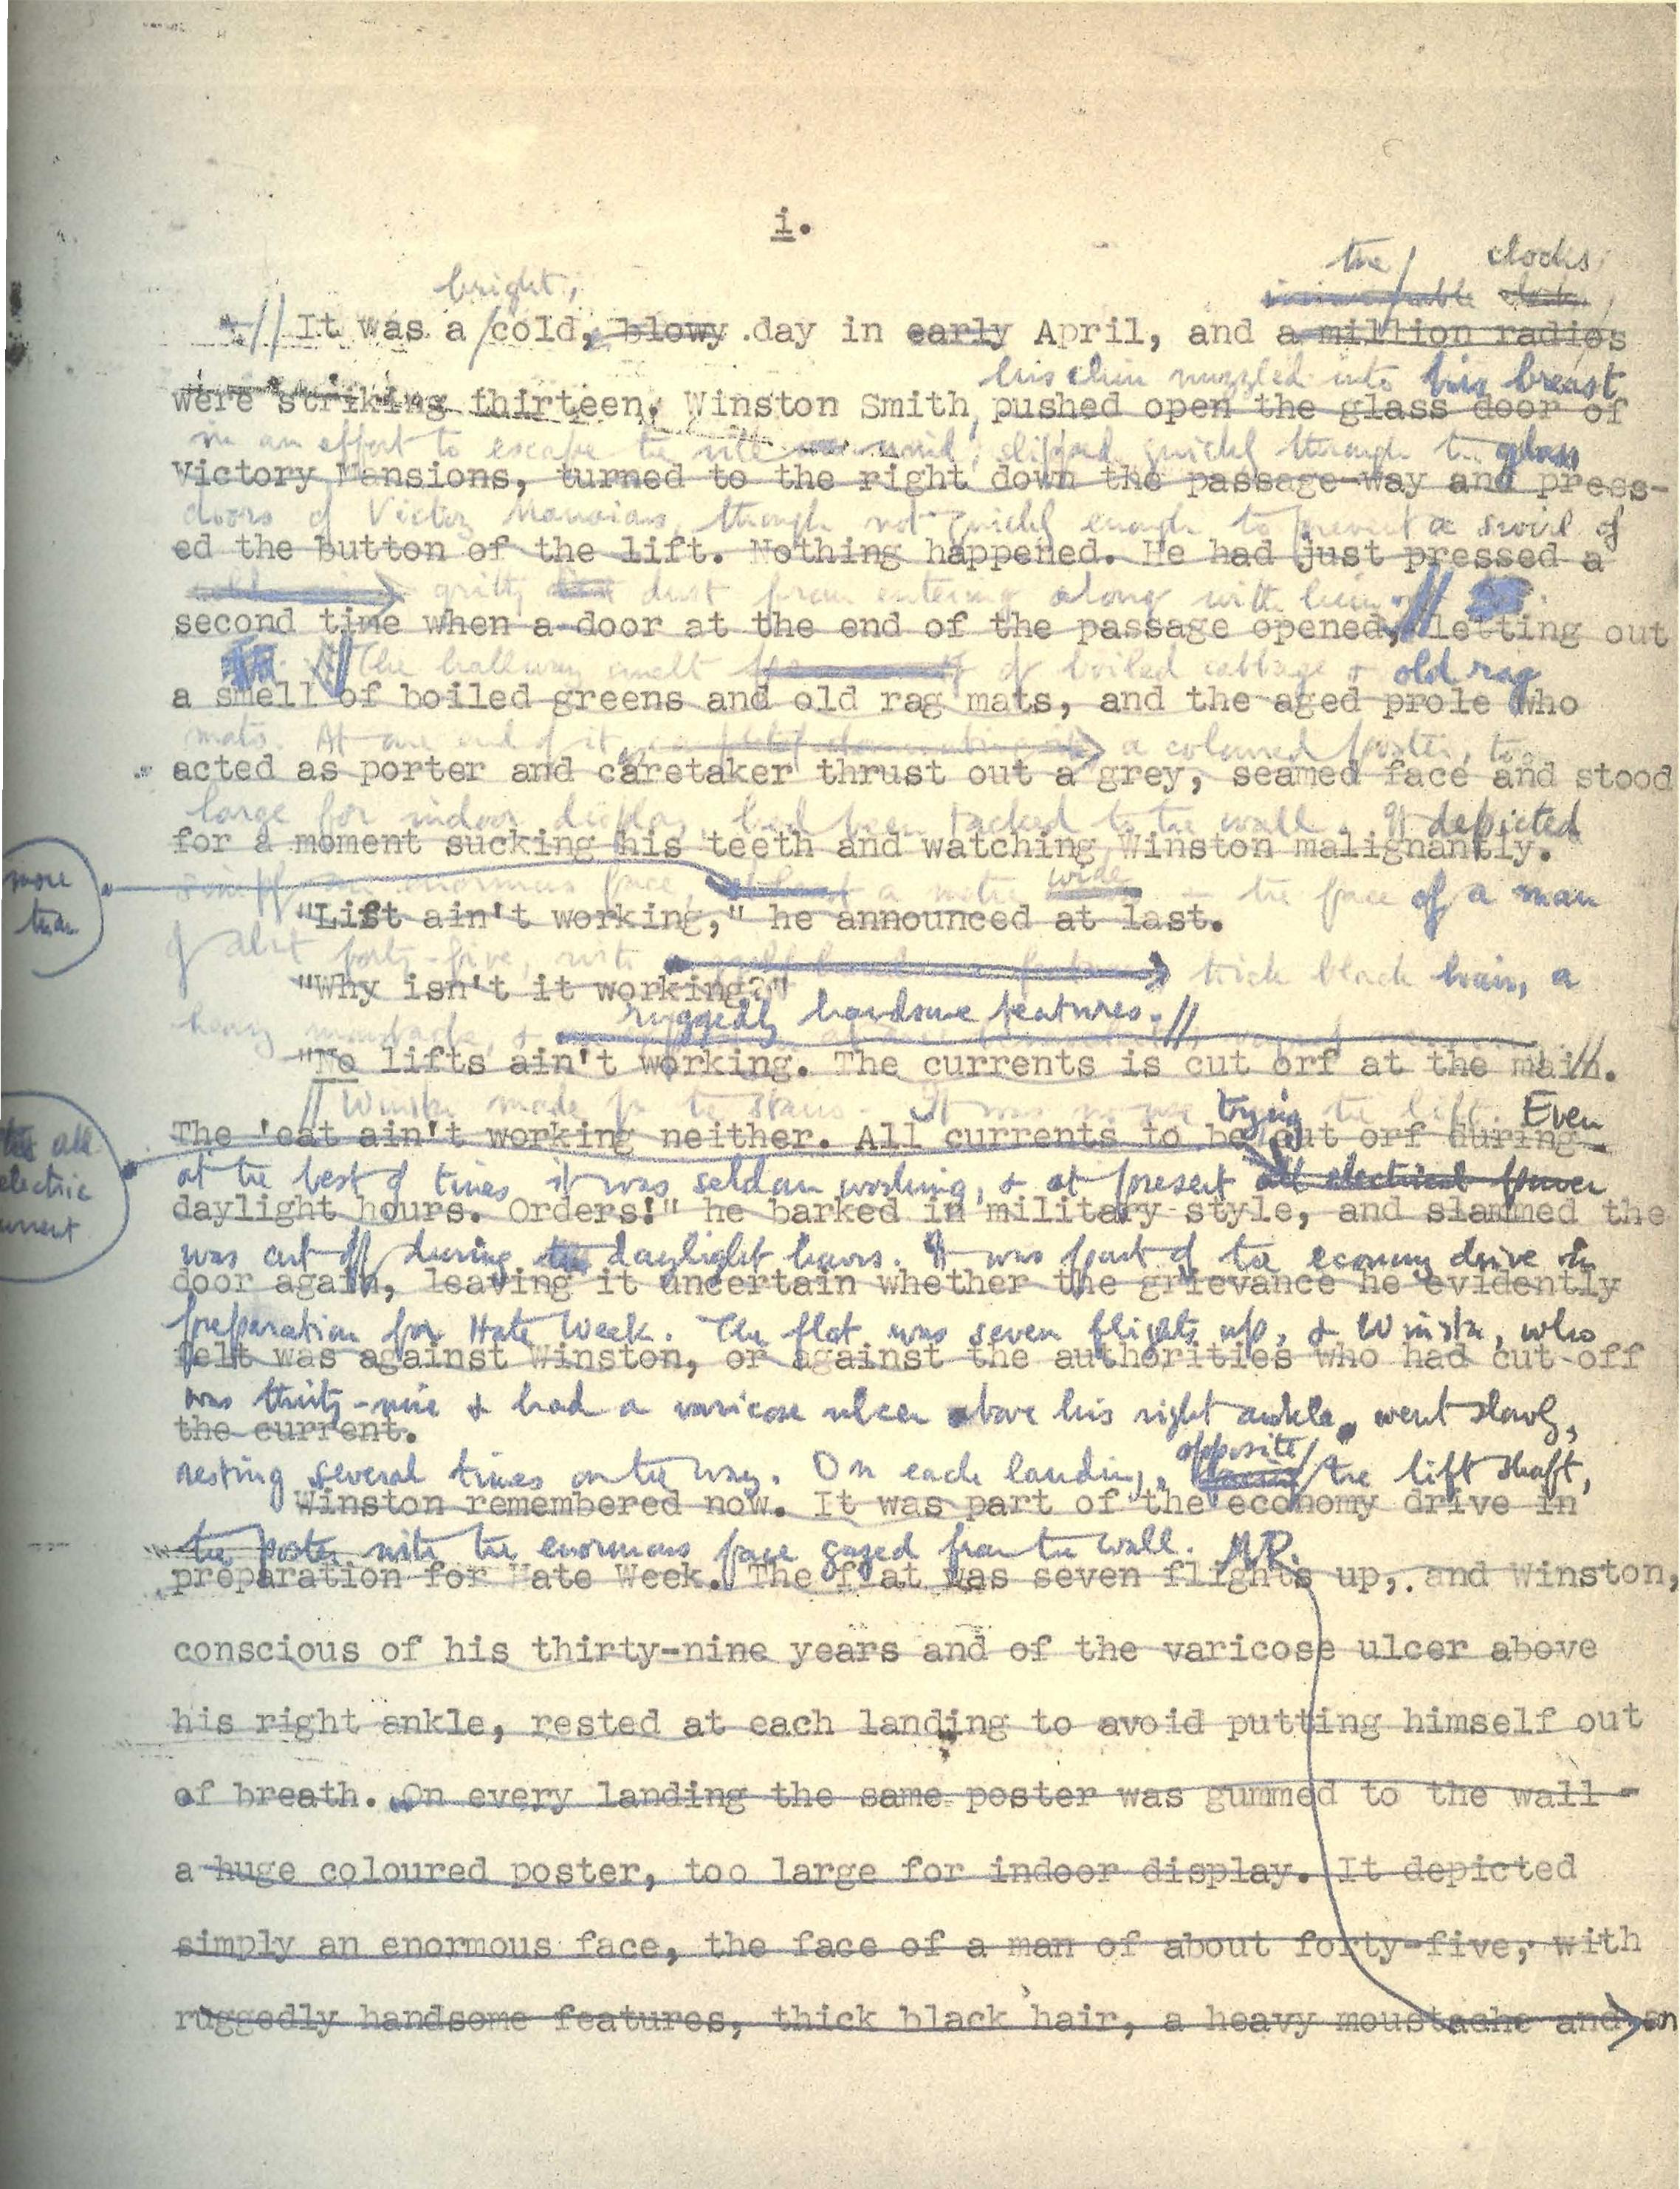 i.
the clocks
bright,
It was a cold, blowy day in early April, and a million radios
his chin nuzzled into his breast
were striking thirteen. Winston Smith, pushed open the glass door of
in an effort to escape the vile wind, slipped quickly through the glass
Victory Mansions, turned to the right down the passage-way and press-
doors of Victory Mansions, though not quickly enough to prevent a swirl of
ed the button of the lift. Nothing happened. He had just pressed a
gritty dust from entering along with him.
second time when a door at the end of the passage opened, letting out
The hallway smelt of boiled cabbage & old rag
a smell of boiled greens and old rag mats, and the aged prole who
mats. At one end of it a coloured poster, too
acted as porter and caretaker thrust out a grey, seamed face and stood
large for indoor display, had been tacked to the wall. It depicted
for a moment sucking his teeth and watching Winston malignantly.
more than
simply an enormous face, a metre wide - the face of a man
"Lift ain't working," he announced at last.
of about forty-five, with thick black hair, a
"Why isn't it working?"
ruggedly handsome features.
heavy moustache, &
"No lifts ain't working. The currents is cut orf at the main.
Winston made for the stairs. It was no use trying the lift. Even
The 'eat ain't working neither. All currents to be cut orf during
all electric current
at the best of times it was seldom working, & at present all electrical power
daylight hours. Orders!" he barked in military style, and slammed the
was cut off during the daylight hours. It was part of the economy drive in
door again, leaving it uncertain whether the grievance he evidently
preparation for Hate Week. The flat was seven flights up, & Winston, who
felt was against Winston, or against the authorities who had cut off
was thirty-nine & had a varicose ulcer above his right ankle, went slowly,
the current.
resting several times on the way. On each landing, opposite the lift shaft,
Winston remembered now. It was part of the economy drive in
the poster with the enormous face gazed from the wall.
preparation for Hate Week. The flat was seven flights up, and Winston,
conscious of his thirty-nine years and of the varicose ulcer above
his right ankle, rested at each landing to avoid putting himself out
of breath. On every landing the same poster was gummed to the wall -
a huge coloured poster, too large for indoor display. It depicted
simply an enormous face, the face of a man of about forty-five, with
ruggedly handsome features, thick black hair, a heavy moustache and an